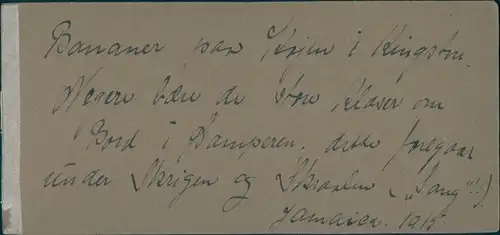 Bananer paa Kajen i Kingston.
Negere bære de store Klaser om
Bord i Damperen, dette foregaar
under Skrigen og Skraalen („Sang"!!)
Jamaica. 1915